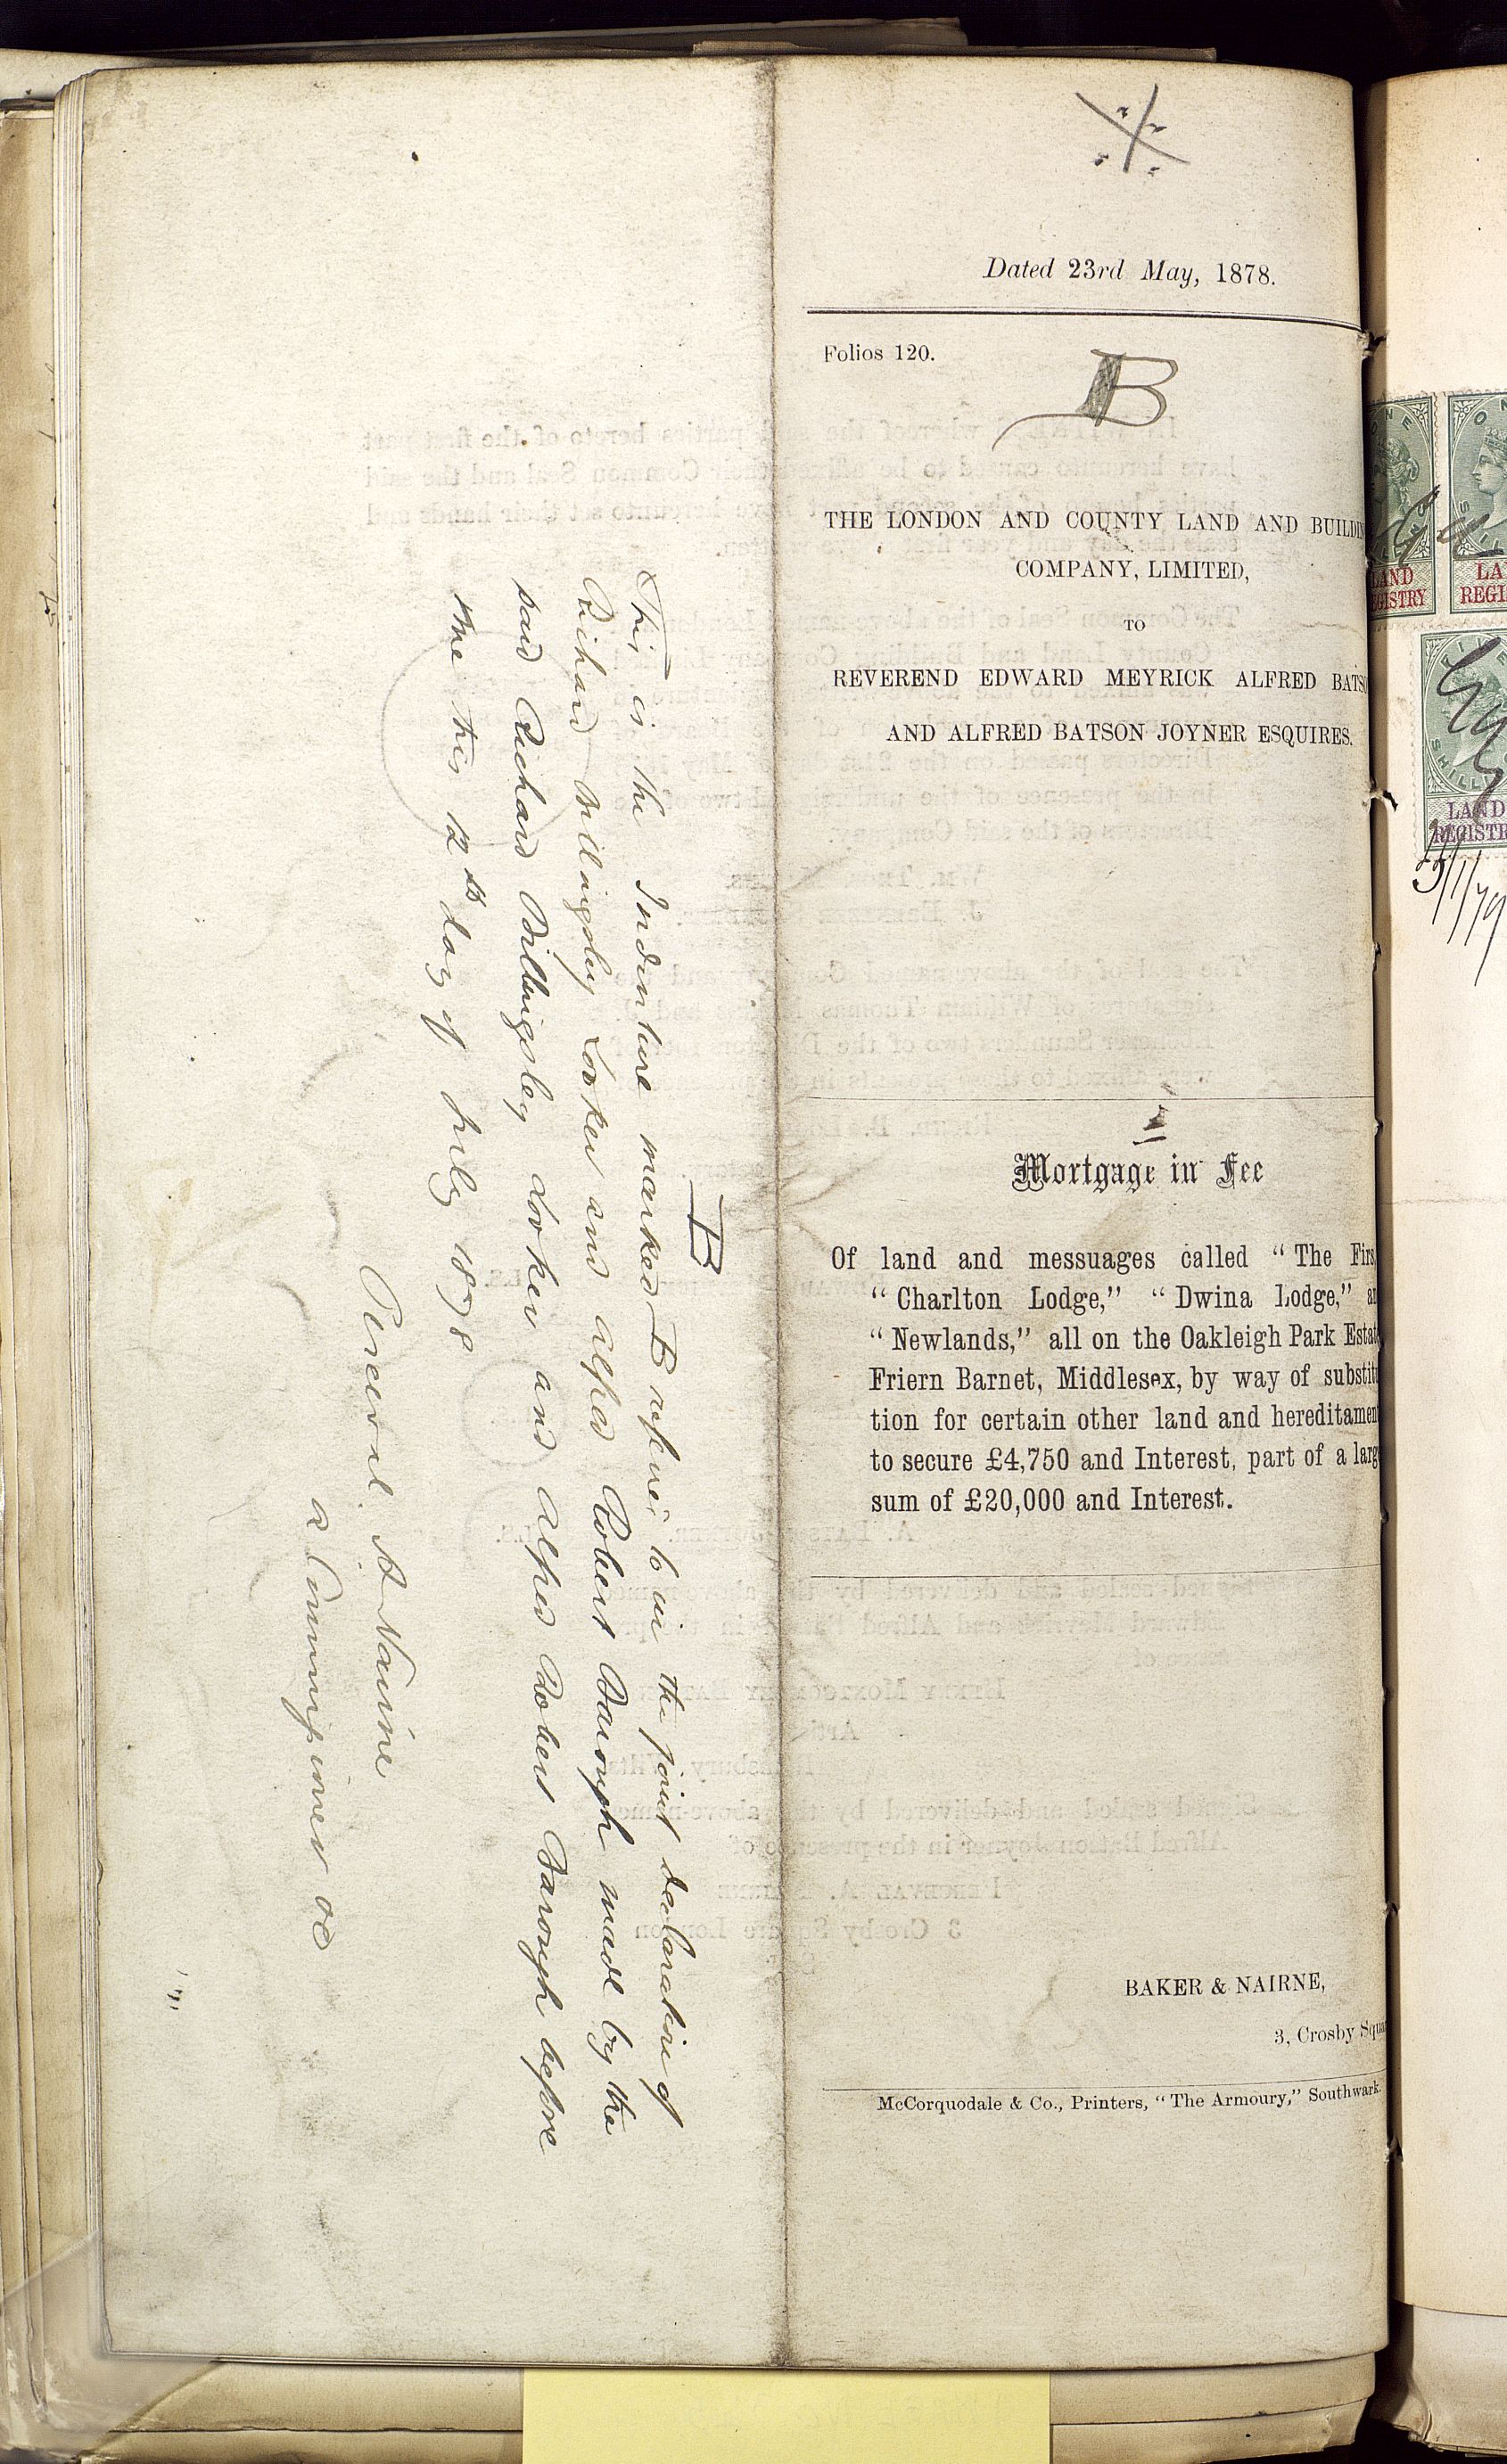 Dated 23rd May, 1878.
Folios 120.
B
THE LONDON AND COUNTY LAND AND BUILDIN
COMPANY, LIMITED,
TO
REVEREND EDWARD MEYRICK ALFRED BATSO
AND ALFRED BATSON JOYNER ESQUIRES.
Mortgage in Fee
Of land and messuages called “The Firs,
“Charlton Lodge,” “Dwina Lodge,” an
“Newlands,” all on the Oakleigh Park Estat
Friern Barnet, Middlesex, by way of substitu
tion for certain other land and hereditament
to secure £4,750 and Interest, part of a larg
sum of £20,000 and Interest.
BAKER & NAIRNE,
3, Crosby Squar
McCorquodale & Co., Printers, “The Armoury,” Southwark.
B
This is the Indenture marked B referred to in the joint declaration of
Richard Billingsley Looker and Alfred Robert Barough made by the
said Richard Billingsley Looker and Alfred Robert Barough before
me this 12th day of July 1878
Perceval A Nairne
a Commissioner &c
LAND
REGISTRY
LA
REGI
LAND
REGISTR